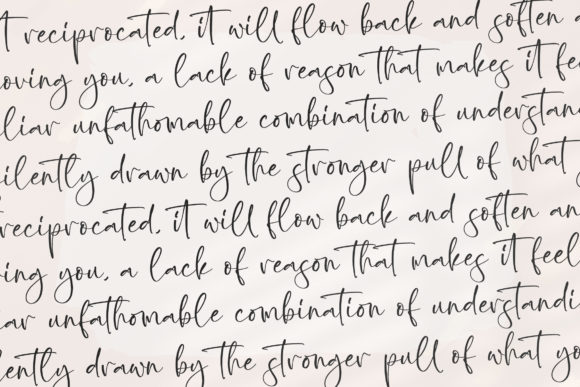 t reciprocated, it will flow back and soften a
oving you, a lack of reason that makes it fee
liar unfathomable combination of understand
ilently drawn by the stronger pull of what y
reciprocated, it will flow back and soften an
ving you, a lack of reason that makes it feel
iar unfathomable combination of understandi
lently drawn by the stronger pull of what yo